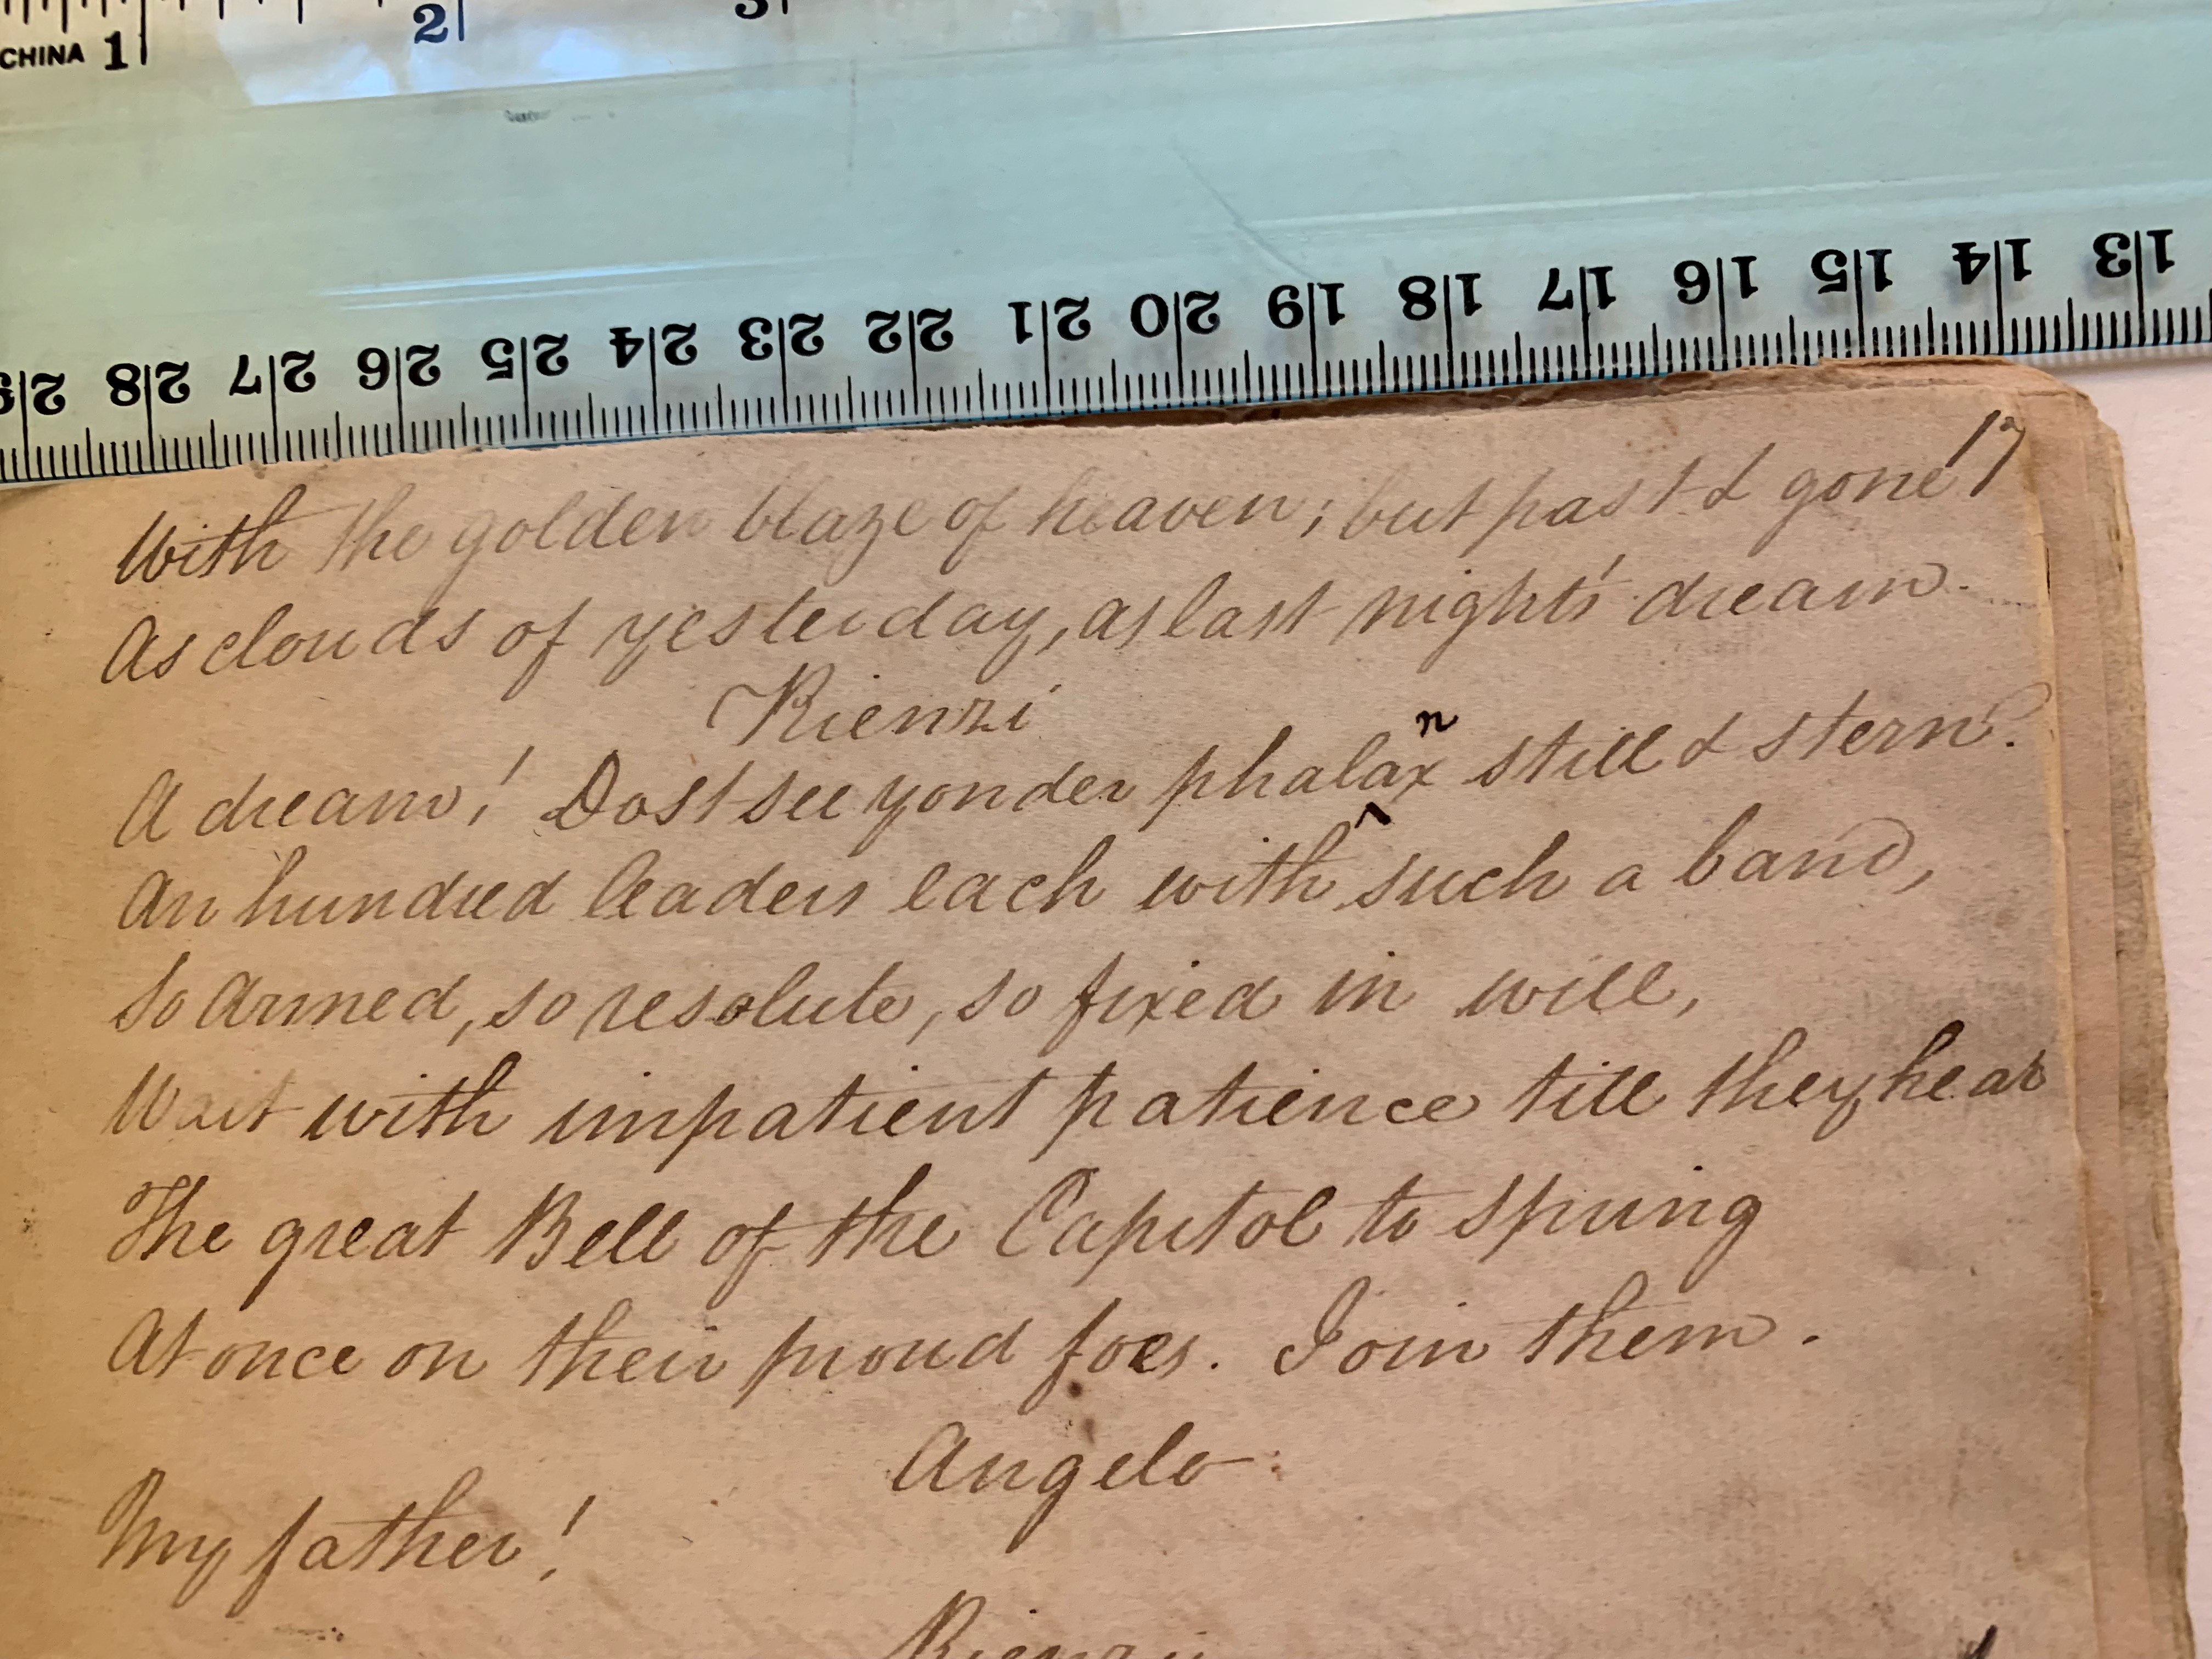 CHINA 1 2 3
29 28 27 26 25 24 23 22 21 20 19 18 17 16 15 14 13
17
With the golden blaze of heaven; but past & gone
As clouds of yesterday, as last night's dream.
Rienzi
n
A dream! Dost see yonder phalax still & stern?
^
An hundred leaders each with such a band,
So armed, so resolute, so fixed in will,
Wait with impatient patience till they hear
The great Bell of the Capitol to spring
At once on their proud foes. Join them.
Angelo
My father!
Rienzi